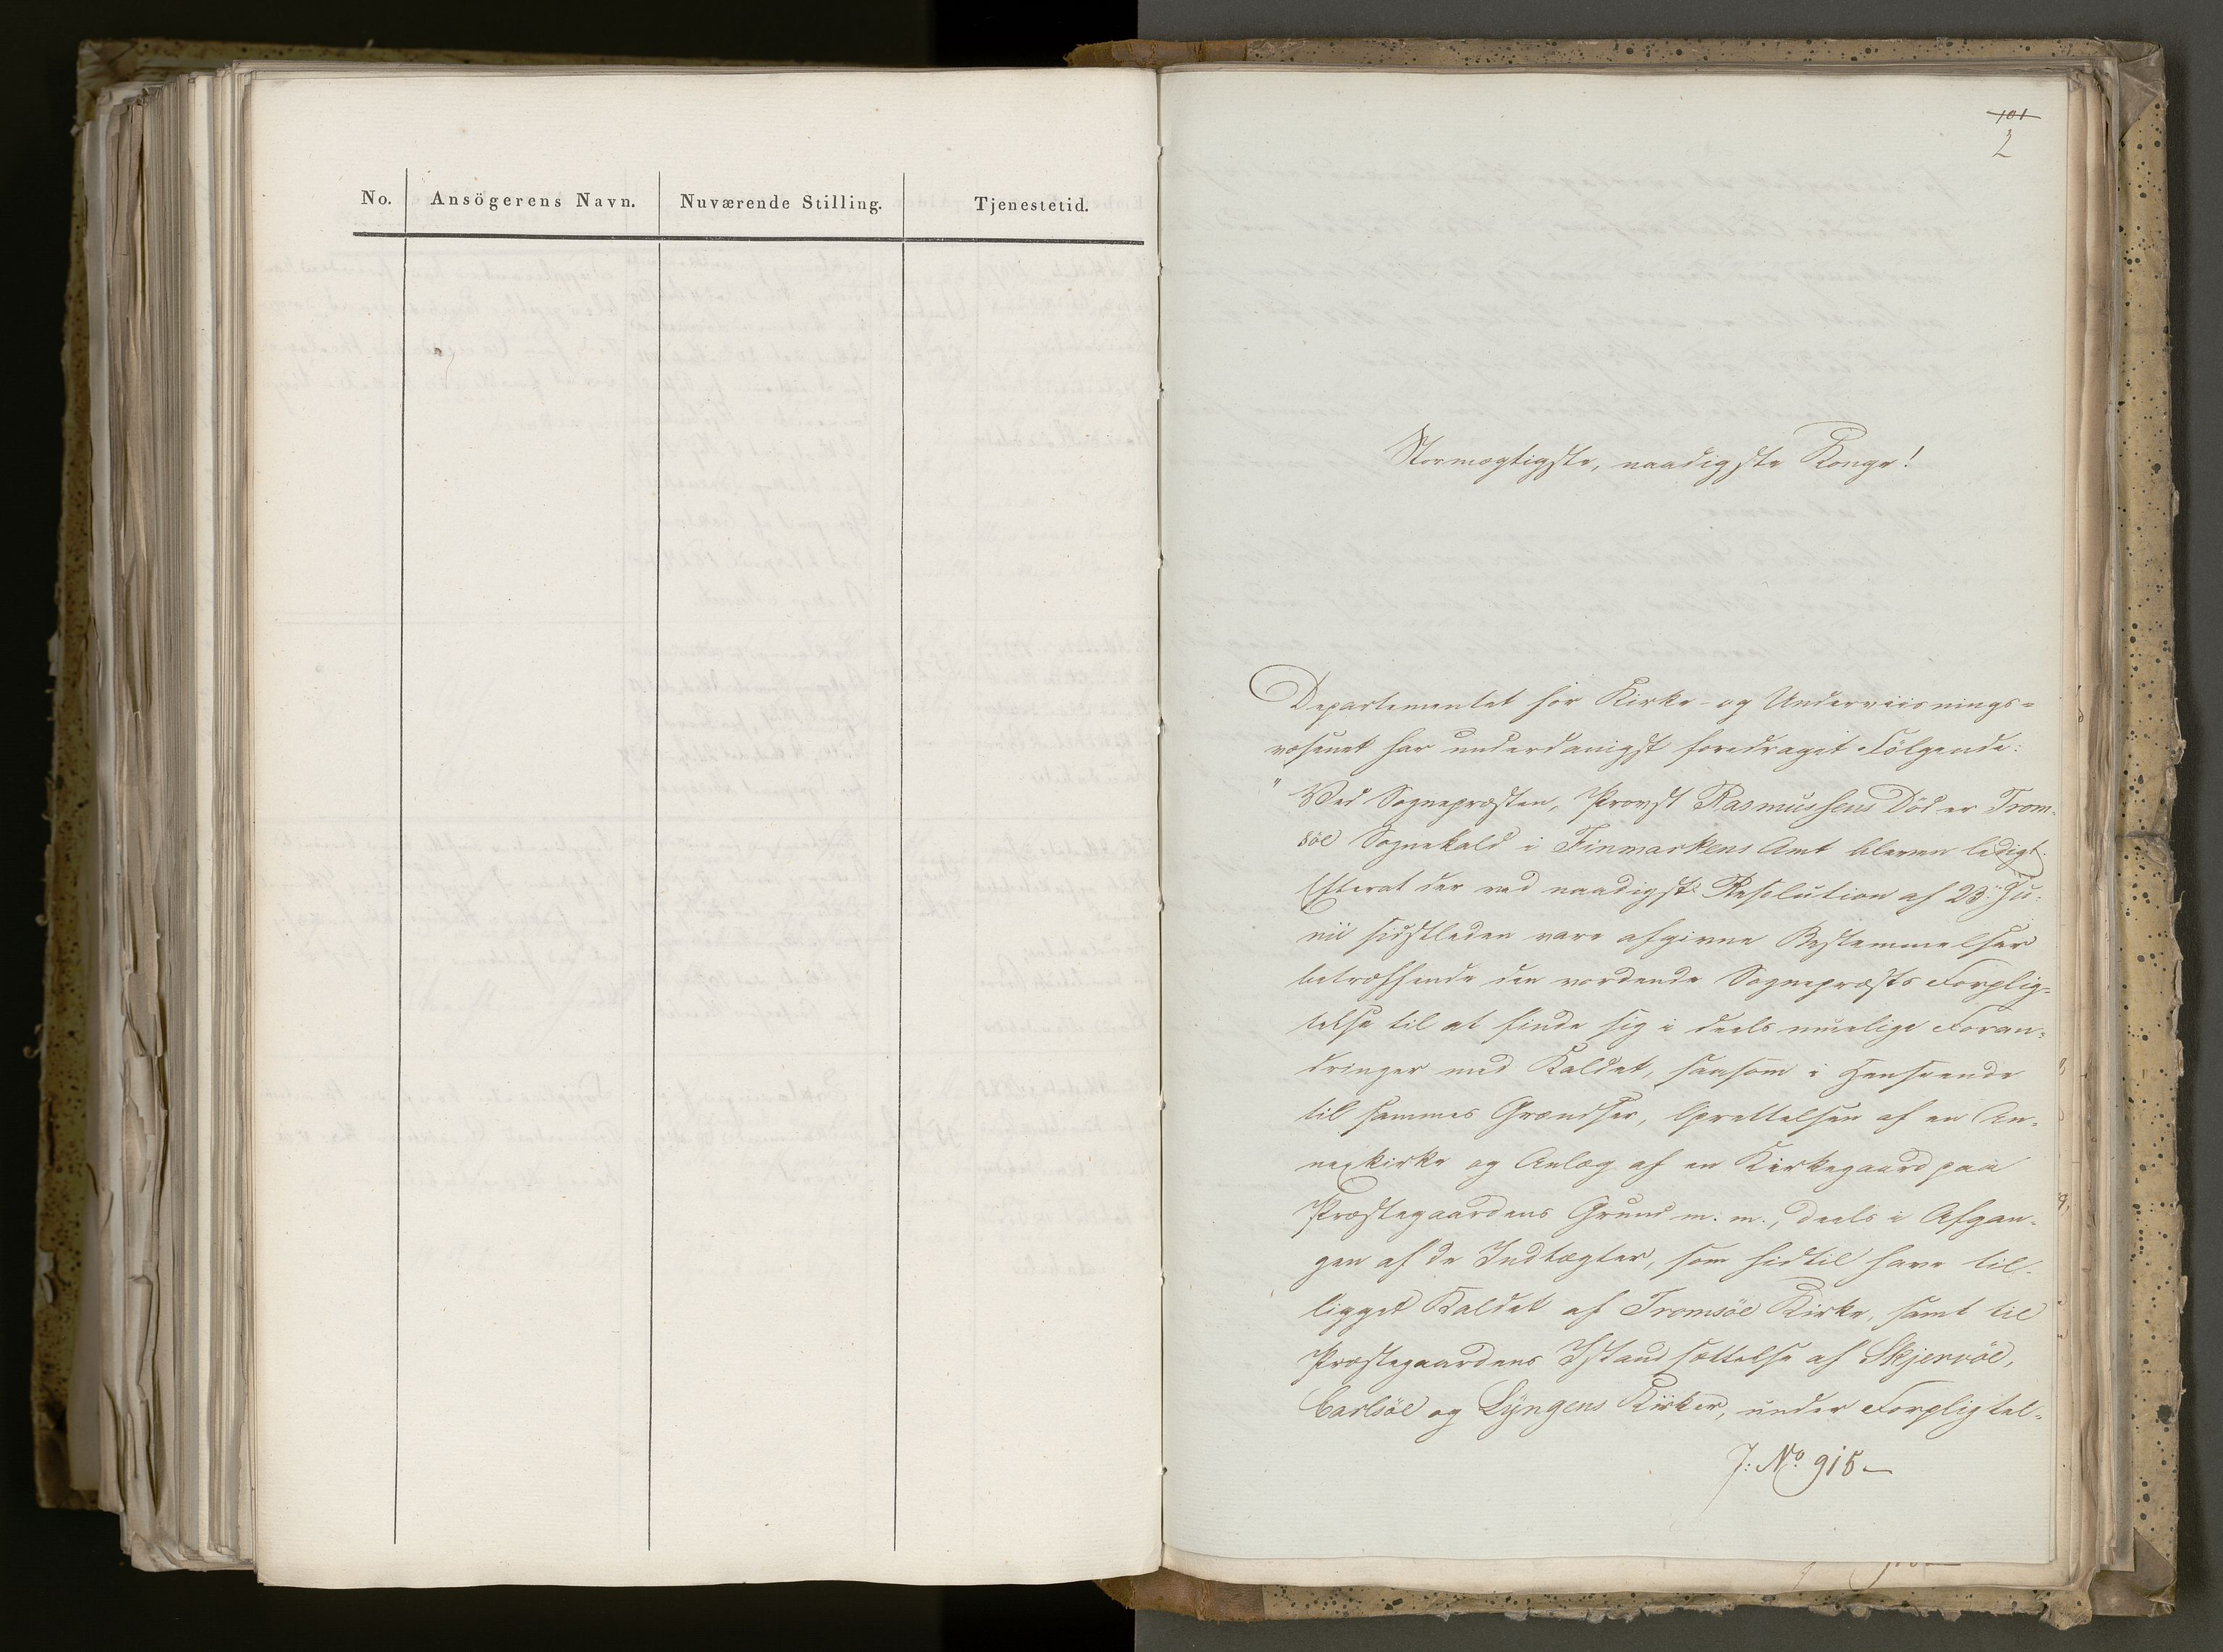 No. Ansögerens Navn. Nuværende Stilling. Tjenestetid.
101
2
Stormægtigste, naadigste Konge!
Departementet for Kirke- og Underviisnings-
væsenet har underdanigst foredraget Følgende:
"Ved Sognepræsten, Provst Rasmussens Död er Trom-
söe Sognekald i Finmarkens Amt bleven ledigt.
Efterat der ved naadigst Resolution af 23. Ju-
nii sidstleden vare afgivne Bestemmelser
betræffende den vordende Sognepræsts Forplig-
telse til at finde sig i deels muelige Foran-
dringer med Kaldet, saasom i Henseende
til sammes Grændser, Oprettelsen af en An-
nexkirke og Anlæg af en Kirkegaard paa
Præstegaardens Grund m. m., deels i Afgan-
gen af de Indtægter, som hidtil have til-
ligget Kaldet af Tromsöe Kirke, samt til
Præstegaardens Istandsættelse af Skjervöe,
Carlsöe og Lyngens Kirker, under Forpligtel-
J: No. 915-